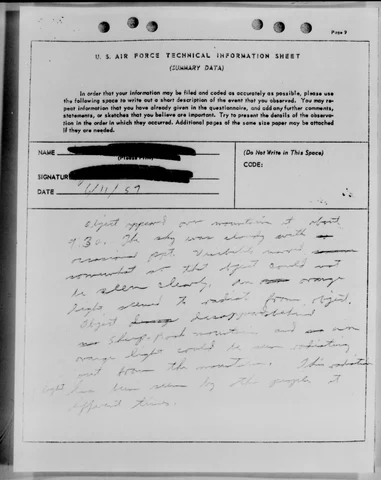 Page 9
U. S. AIR FORCE TECHNICAL INFORMATION SHEET
(SUMMARY DATA)
In order that your information may be filed and coded as accurately as possible, please use
the following space to write out a short description of the event that you observed. You may re-
peat information that you have already given in the questionnaire, and add any further comments,
statements, or sketches that you believe are important. Try to present the details of the observa-
tion in the order in which they occurred. Additional pages of the same size paper may be attached
if they are needed.
NAME
(Please Print)
(Do Not Write in This Space)
CODE:
SIGNATUR
DATE
Object appeared over mountains at about
9:30. The sky was cloudy with
occasional
somewhat so that object could not
be seen clearly. An orange
light seemed to radiate from object.
Object disappeared behind
mountain and an
orange light could be seen radiating
out from the mountain. This
light has been seen by the people at
different times.